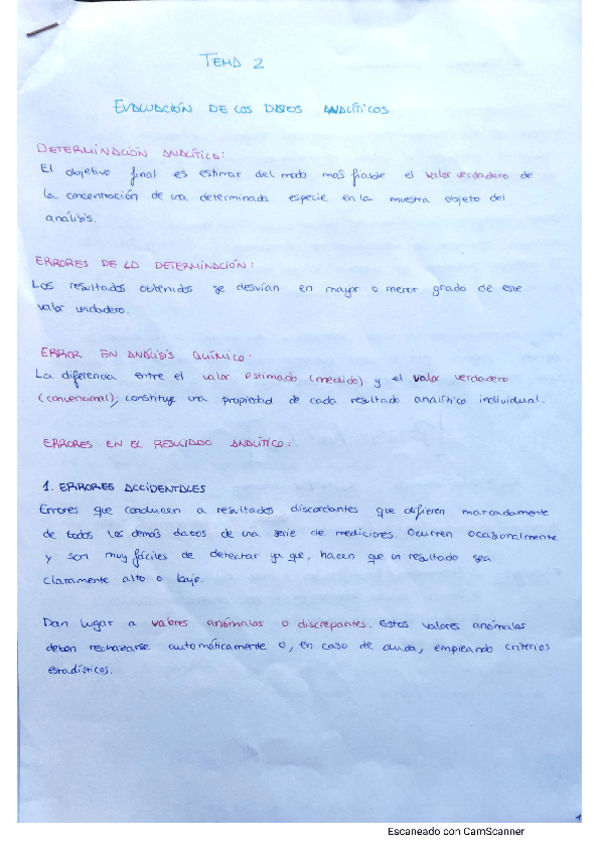 TEMA 2
EVALUACIÓN DE LOS DATOS ANALÍTICOS
DETERMINACIÓN ANALÍTICA:
El objetivo final es estimar del modo más fiable el valor verdadero de
la concentración de una determinada especie en la muestra objeto del
análisis.
ERRORES DE LA DETERMINACIÓN:
Los resultados obtenidos se desvían en mayor o menor grado de este
valor verdadero.
ERROR EN ANÁLISIS QUÍMICO:
La diferencia entre el valor estimado (medido) y el valor verdadero
(convencional), constituye una propiedad de cada resultado analítico individual.
ERRORES EN EL RESULTADO ANALÍTICO:
1. ERRORES ACCIDENTALES
Errores que conducen a resultados discordantes que difieren marcadamente
de todos los demás datos de una serie de mediciones. Ocurren ocasionalmente
y son muy fáciles de detectar ya que, hacen que un resultado sea
claramente alto o bajo.
Dan lugar a valores anómalos o discrepantes. Estos valores anómalos
deben rechazarse automáticamente o, en caso de duda, empleando criterios
estadísticos.
1
Escaneado con CamScanner